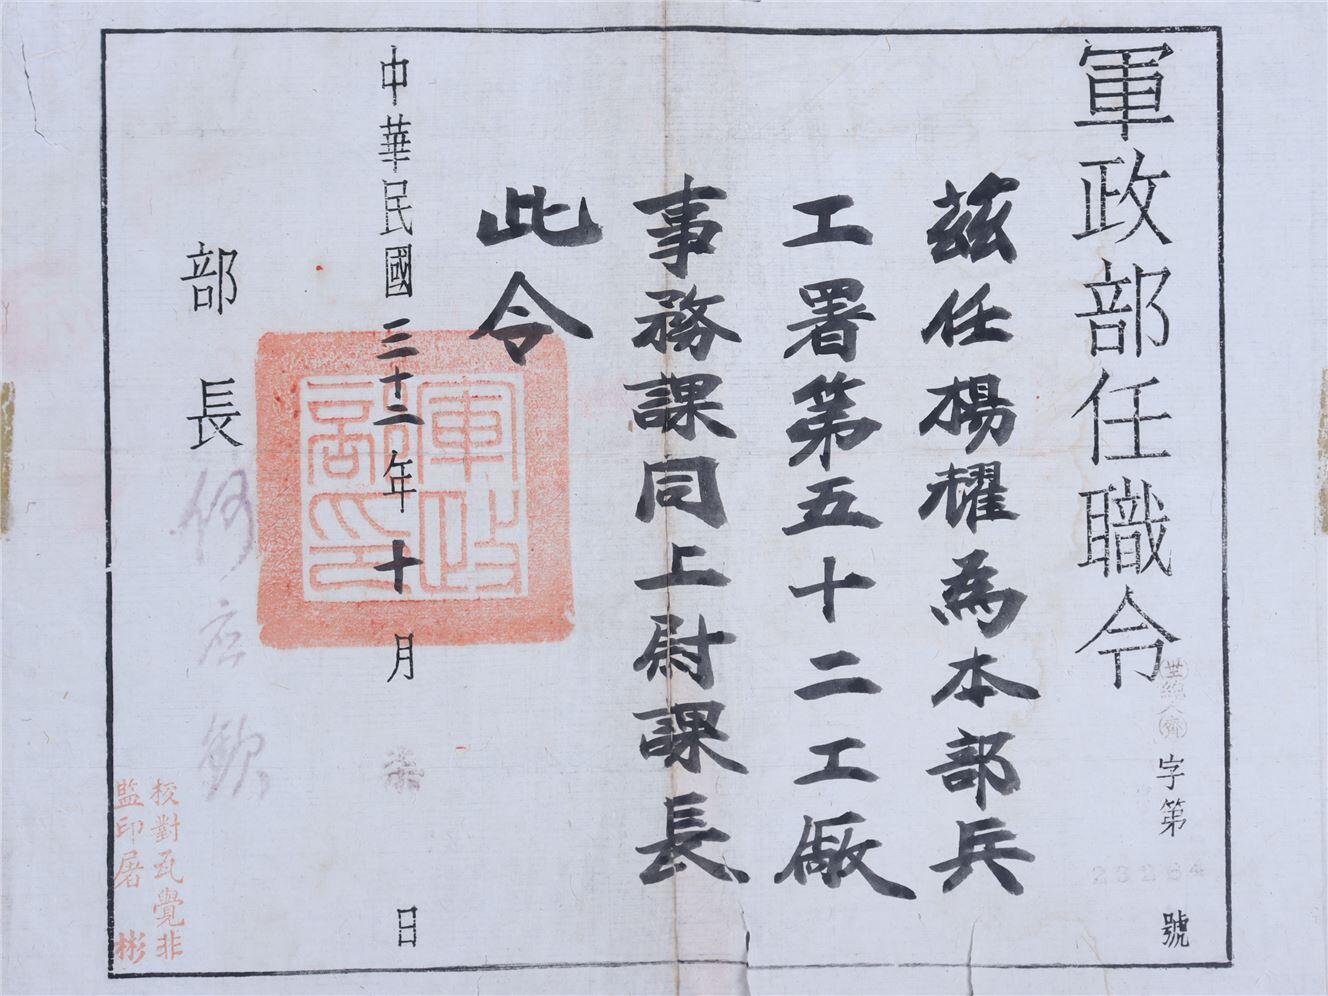 軍政部任職令
字第
23264
號
茲任楊耀為本部兵
工署第五十二工廠
事務課同上尉課長
此令
中華民國三十二年十月 日
部長何应欽
軍政部印
校對 覺非
監印屠彬